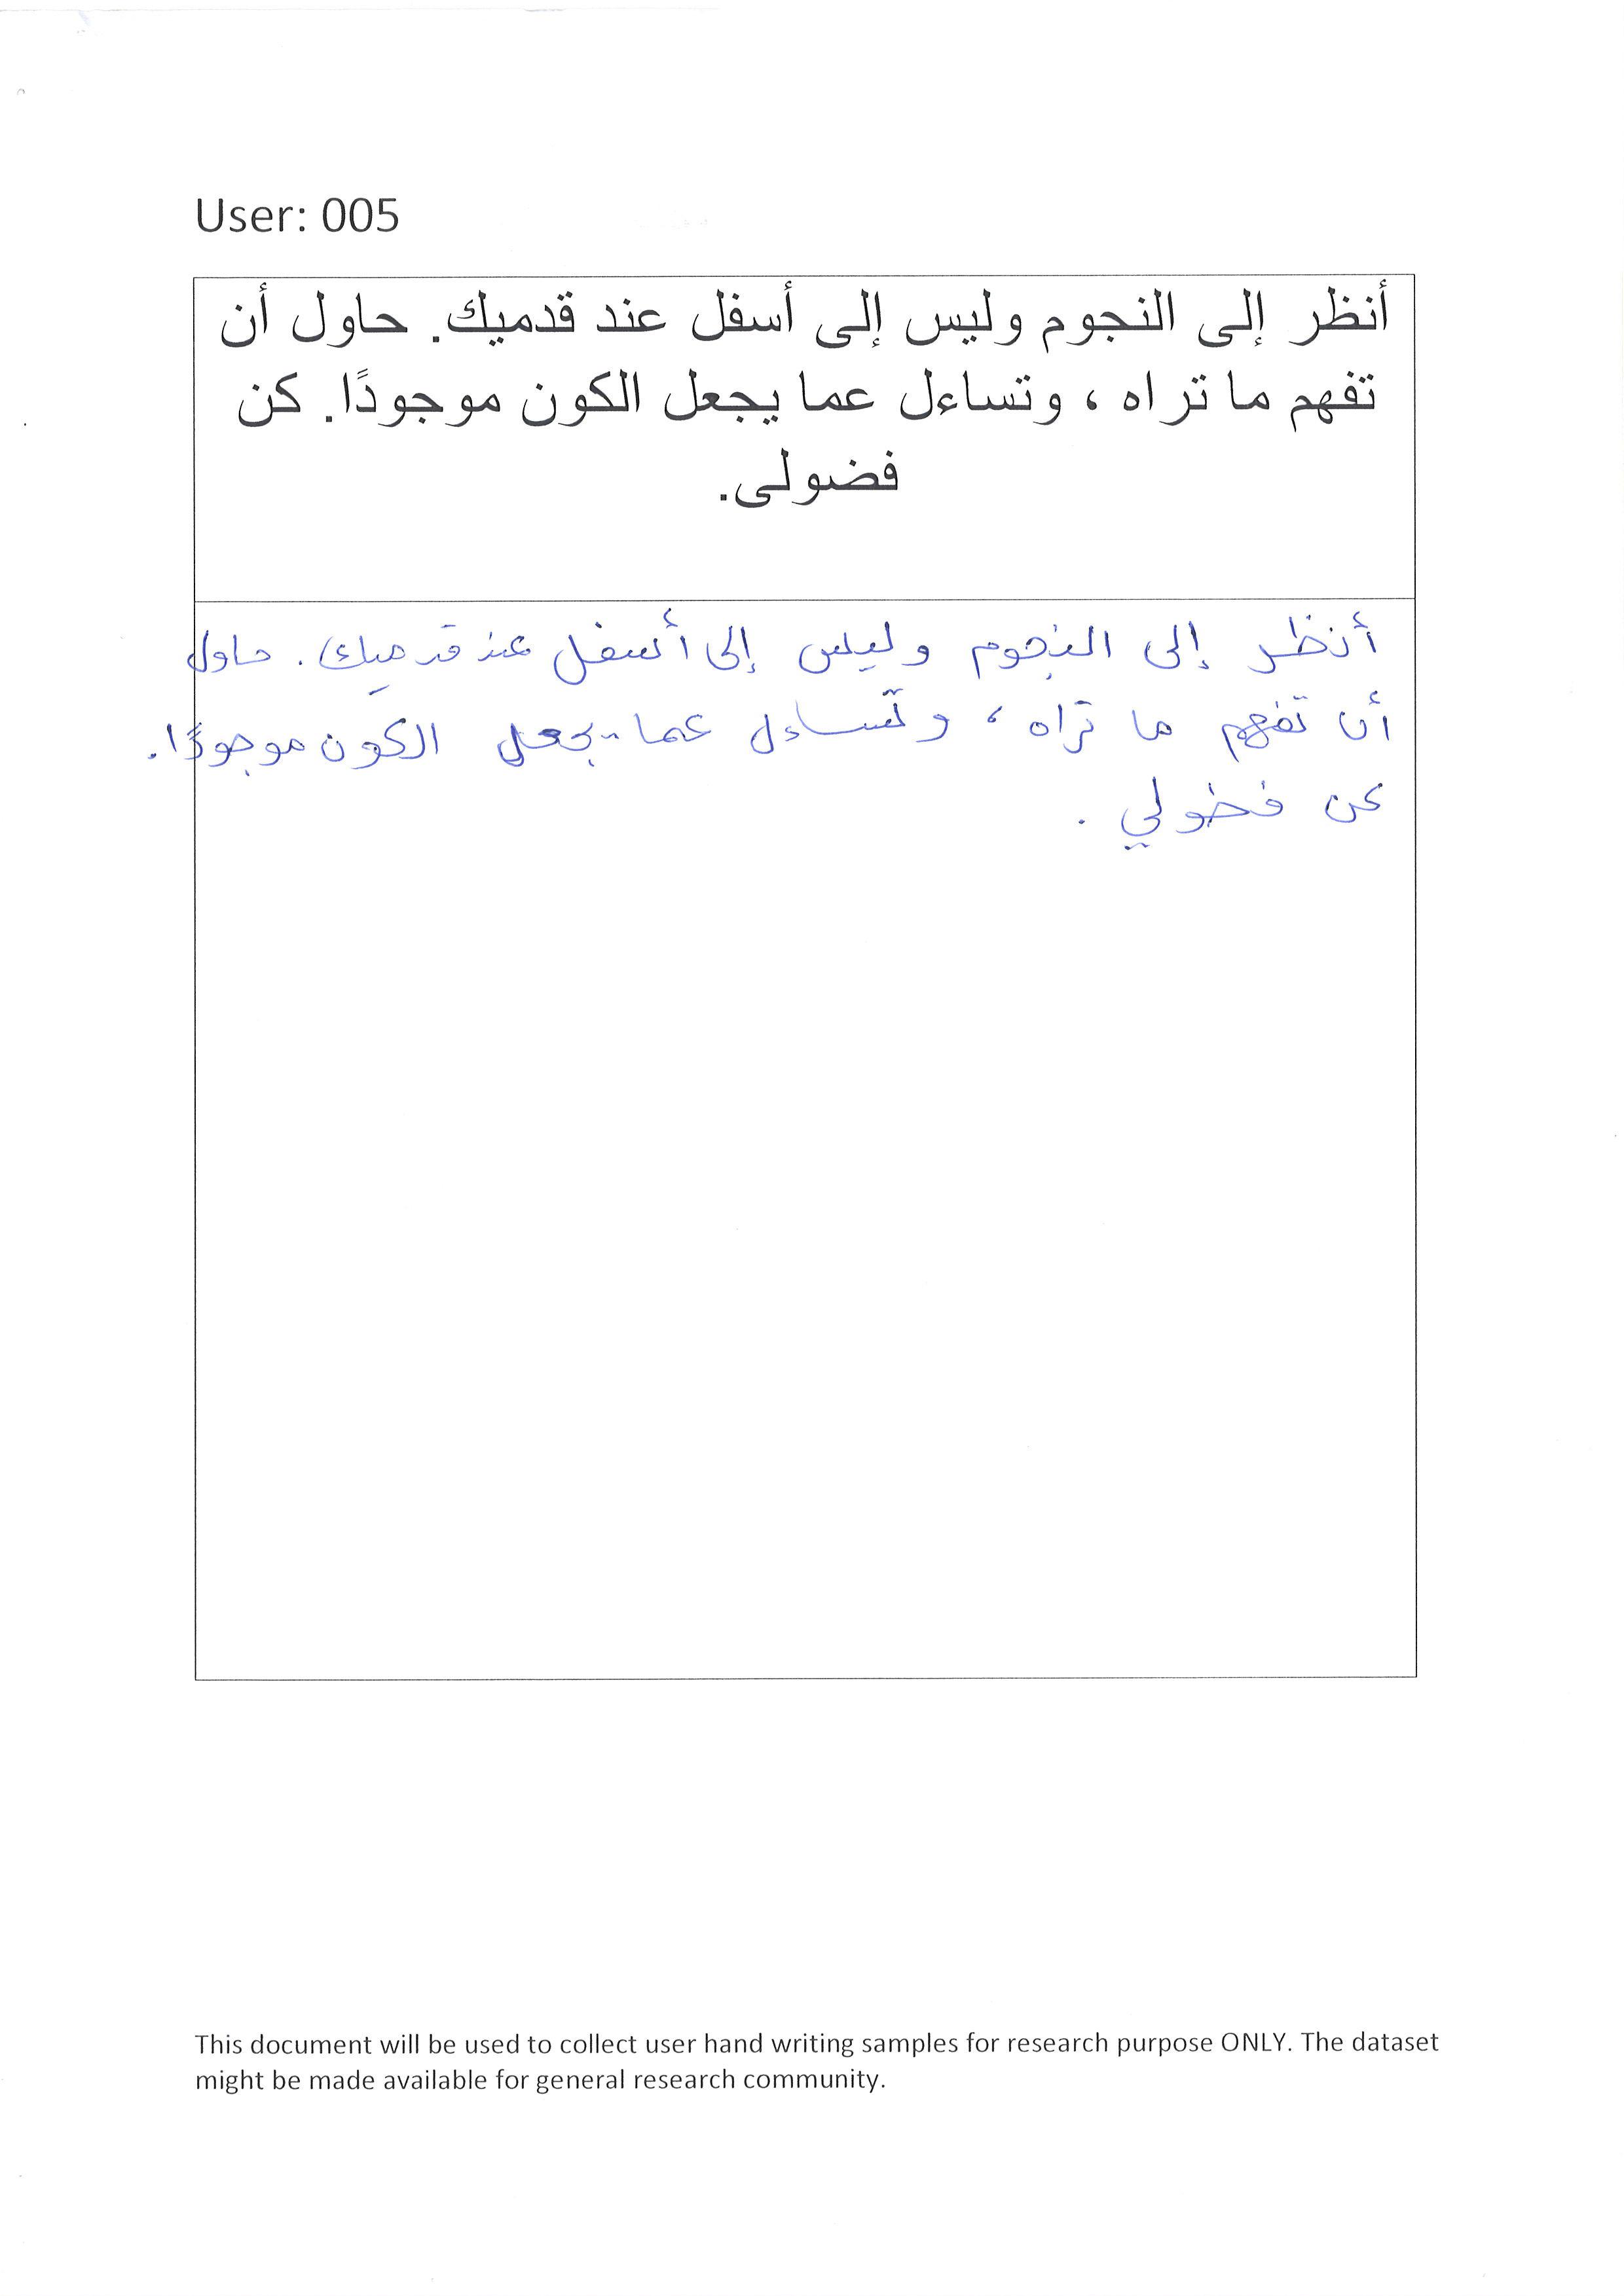 User: 005
أنظر إلى النجوم وليس إلى أسفل عند قدميك. حاول أن
تفهم ما تراه ، وتساءل عما يجعل الكون موجودًا. كن
فضولى.
أنظر إلى النجوم وليس إلى أسفل عند قدميك. حاول
أن تفهم ما تراه ، وتساءل عما يجعل الكون موجودًا.
كن فضولي .
This document will be used to collect user hand writing samples for research purpose ONLY. The dataset
might be made available for general research community.